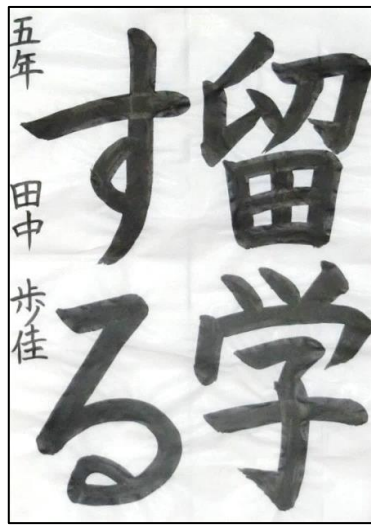 留学
する
五年 田中 歩佳